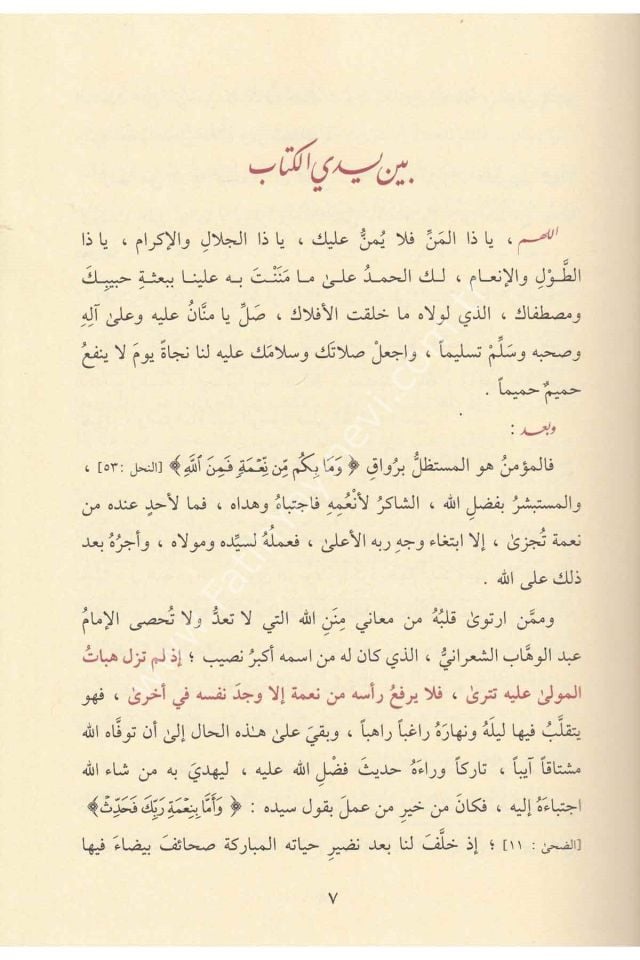 بين يدي الكتاب
اللهم ، يا ذا المَنِّ فلا يُمنُّ عليك ، يا ذا الجلالِ والإكرام ، يا ذا
الطَّوْلِ والإنعام ، لك الحمدُ علىٰ ما مَنَنْتَ به علينا ببعثةِ حبيبِكَ
ومصطفاك ، الذي لولاه ما خلقت الأفلاك ، صَلِّ يا منَّان عليه وعلىٰ آلِهِ
وصحبه وسَلِّمْ تسليماً ، واجعلْ صلاتَك وسلامَك عليه لنا نجاةً يومَ لا ينفعُ
حميمٌ حميماً .
وبعد :
فالمؤمنُ هو المستظلُّ برُواقِ ﴿ وَمَا بِكُم مِّن نِّعْمَةٍ فَمِنَ ٱللَّهِ ﴾ [النحل : ٥٣] ،
والمستبشرُ بفضلِ الله ، الشاكرُ لأنْعُمِهِ فاجتباهُ وهداه ، فما لأحدٍ عنده من
نعمة تُجزىٰ ، إلا ابتغاء وجهِ ربه الأعلىٰ ، فعملُهُ لسيِّده ومولاه ، وأجرُهُ بعد
ذلك على الله .
وممَّن ارتوىٰ قلبُهُ من معاني مِنَنِ الله التي لا تعدُّ ولا تُحصى الإمامُ
عبد الوهَّاب الشعرانيُّ ، الذي كان له من اسمه أكبرُ نصيب ؛ إذ لم تزل هباتُ
المولىٰ عليه تترىٰ ، فلا يرفعُ رأسه من نعمة إلا وجدَ نفسه في أخرىٰ ، فهو
يتقلَّبُ فيها ليلَهُ ونهارَهُ راغباً راهباً ، وبقيَ علىٰ هٰذه الحال إلىٰ أن توفَّاه الله
مشتاقاً آيباً ، تاركاً وراءَهُ حديثَ فضْلِ الله عليه ، ليهديَ به من شاء الله
اجتباءَهُ إليه ، فكانَ من خيرِ من عملَ بقول سيده : ﴿ وَأَمَّا بِنِعْمَةِ رَبِّكَ فَحَدِّثْ ﴾
[الضحىٰ : ١١] ؛ إذ خلَّفَ لنا بعد نضيرِ حياته المباركة صحائفَ بيضاءَ فيها
٧